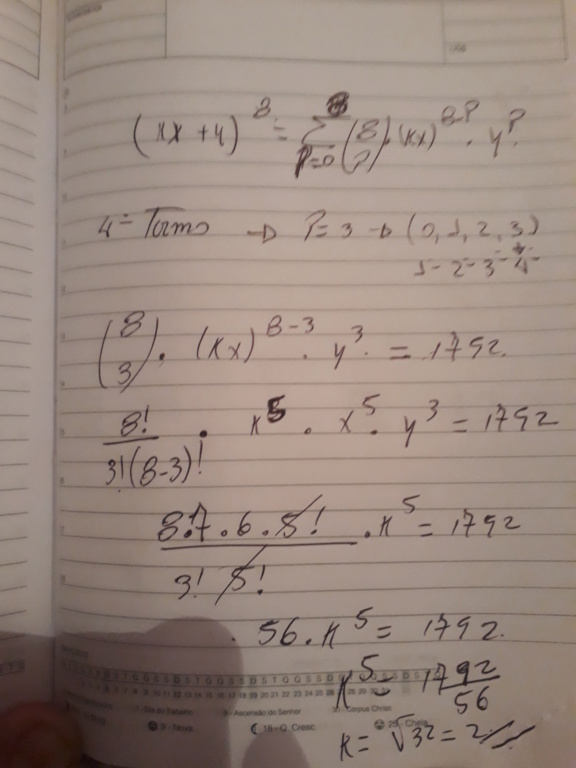 (kx + y)^8 = Σ_{P=0}^{8} (8 P) . (kx)^{8-P} . y^P.
4º Termo → P = 3 → (0, 1, 2, 3)
1º 2º 3º 4º
(8 3) . (kx)^{8-3} . y^3. = 1792.
8!/3!(8-3)! . k^5 . x^5 . y^3 = 1792
8.7.6.5!/3! 5! . k^5 = 1792
. 56 . k^5 = 1792.
k^5 = 1792/56
k = √32 = 2 //
- Dia do Trabalho - Ascensão do Senhor - Corpus Christi
9 - Nova 18 - Q. Cresc. 25 - Cheia